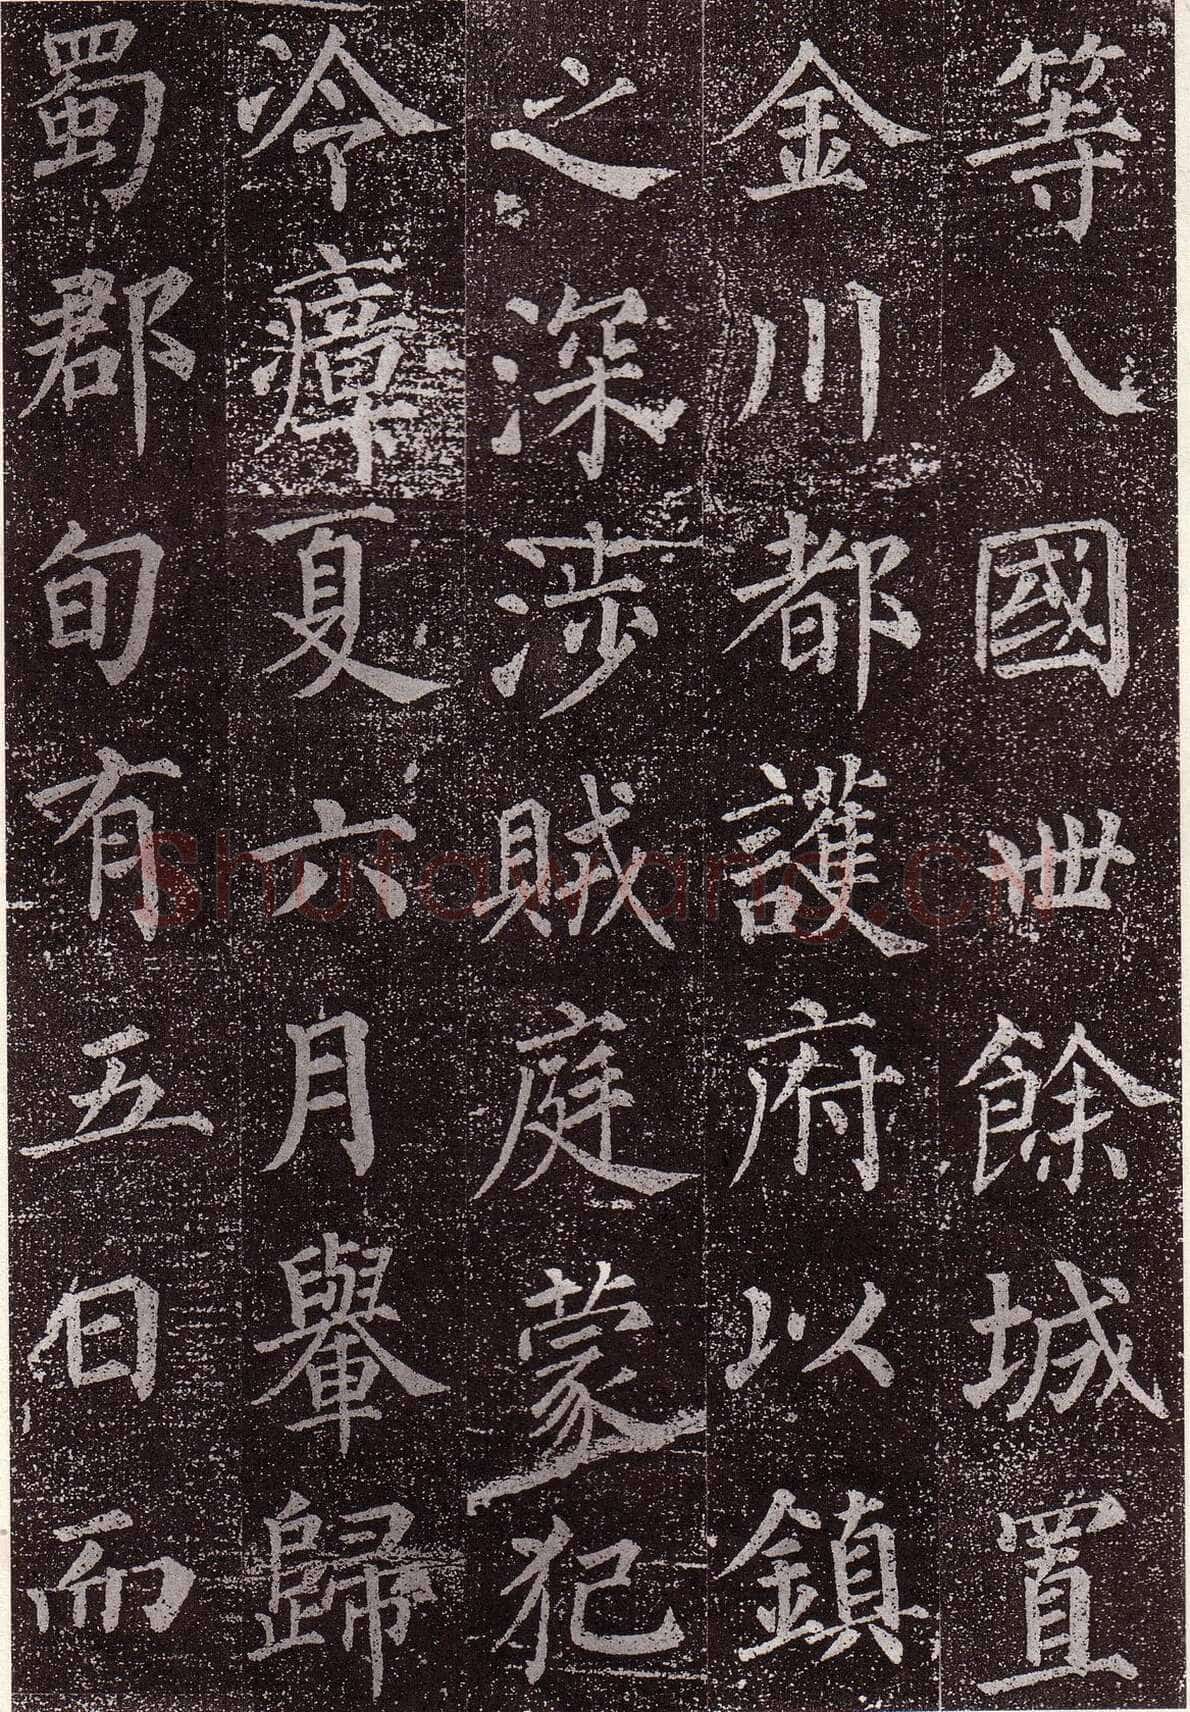 等八國卌餘城置
金川都護府以鎮
之深涉賊庭蒙犯
冷瘴夏六月轝歸
蜀郡旬有五日而
Shufawang.cn